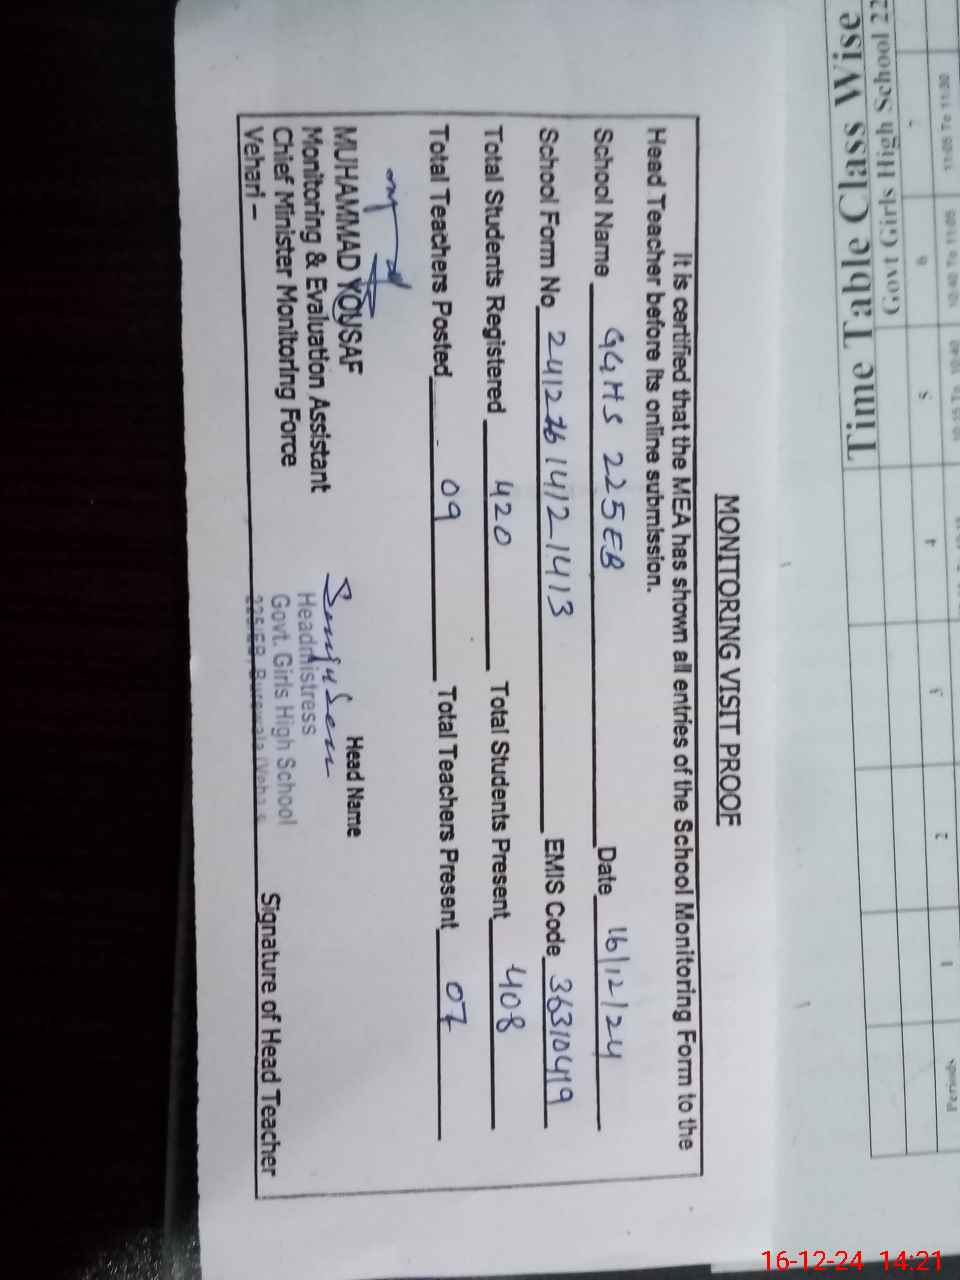 MONITORING VISIT PROOF
It is certified that the MEA has shown all entries of the School Monitoring Form to the
Head Teacher before its online submission.
School Name GGHS 225EB Date 16/12/24
School Form No 24121614121413 EMIS Code 36310419
Total Students Registered 420 Total Students Present 408
Total Teachers Posted 09 Total Teachers Present 07
MUHAMMAD YOUSAF
Monitoring & Evaluation Assistant
Chief Minister Monitoring Force
Vehari –
Head Name
Headmistress
Govt. Girls High School
225/EB, Burewala
Signature of Head Teacher
Time Table Class Wise
Govt Girls High School 22
Periods
1
2
3
4
5
6
7
16-12-24 14:21